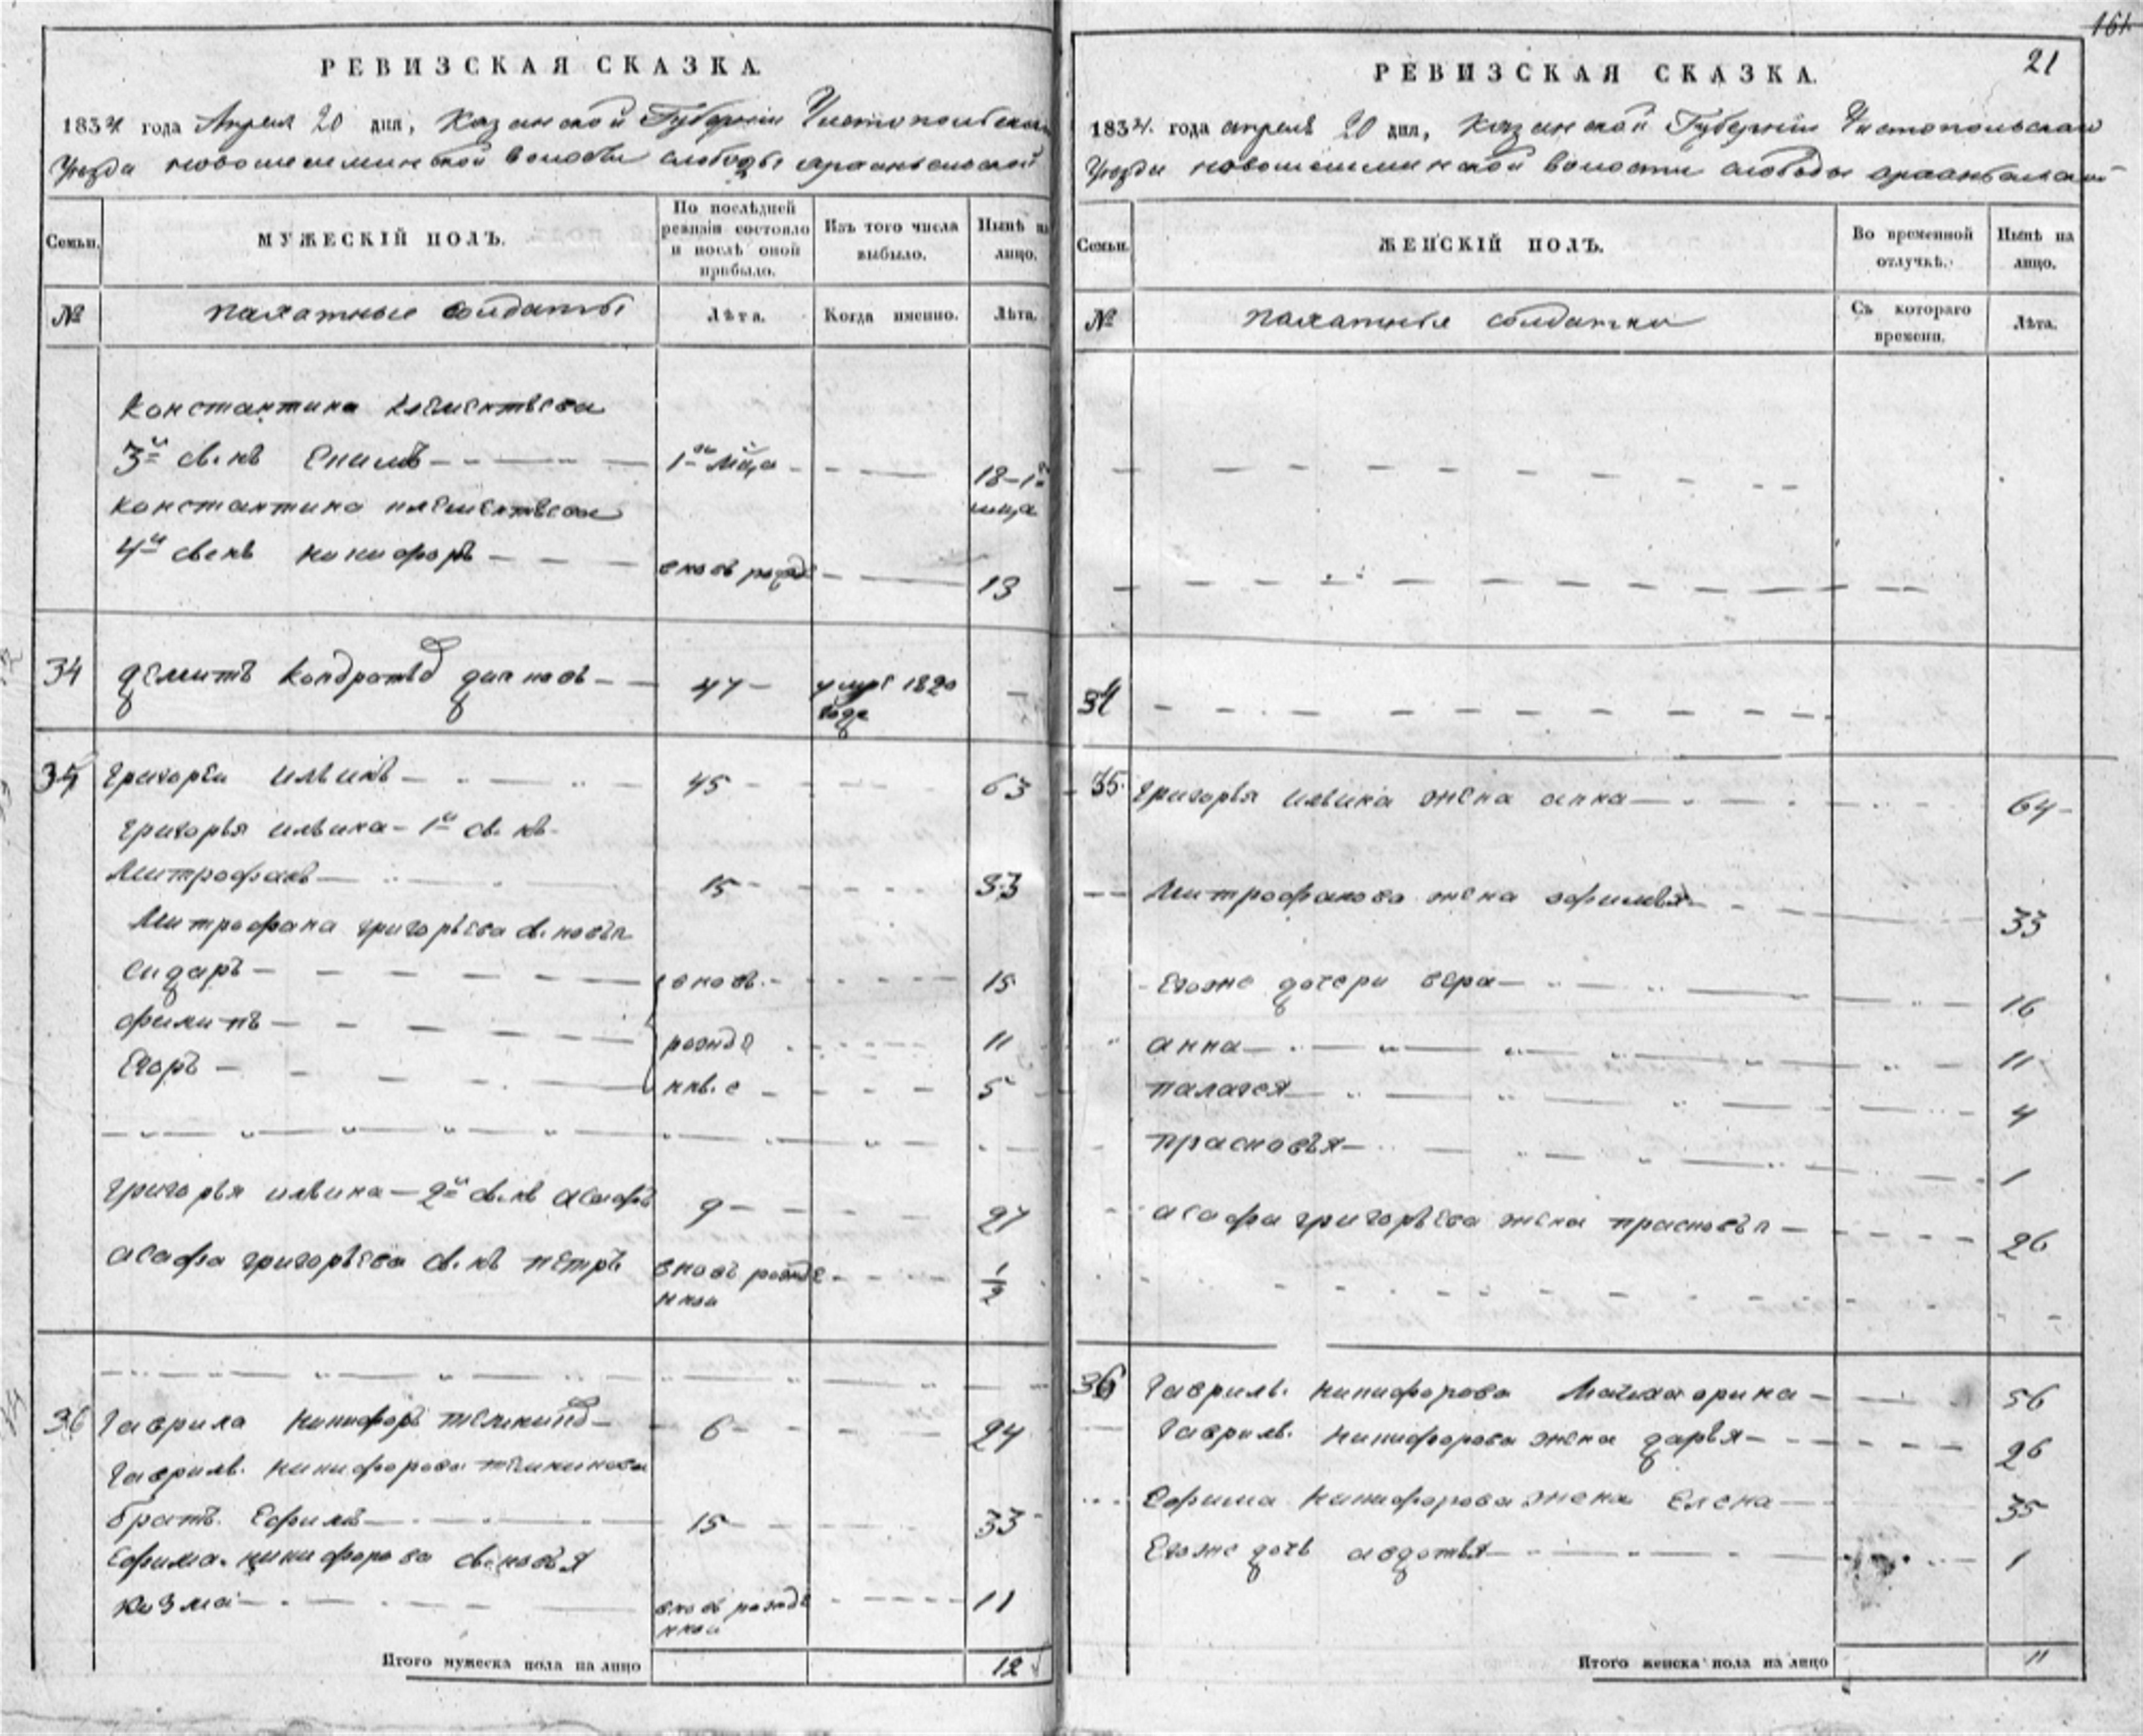 РЕВИЗСКАЯ СКАЗКА.
1834 года Апреля 20 дня, Казанской Губернии Чистопольскаго
Уезда новошешминской волости слободы архангельской
Семьи.
МУЖЕСКІЙ ПОЛЪ.
По послѣдней ревизіи состояло и послѣ оной прибыло.
Изъ того числа выбыло.
Нынѣ на лицо.
№
пахатные солдаты
Лѣта.
Когда именно.
Лѣта.
Константина Клементьева
3й Енимъ 1 мца 18-1
Константина клементьева
4й никифоръ вновь рожд 13
34 Кондратьев 47 умре 1820 года
35 григореи ильинъ 45 63
григорья ильина 1й
Митрофанъ 15 33
Митрофана григорьева
сидаръ вновь 15
филипъ рожде 11
Егоръ нные 5
григорья ильина 2й асафъ 9 27
асафа григорьева петръ вновь рожде нной 1/2
36 гаврила никифор темкинъ 6 24
гаврилы никифорова темкинова
братъ Ефимъ 15 33
Ефима никифорова сыновья
козма вновь рожде нной 11
Итого мужеска пола на лицо 12
161
21
РЕВИЗСКАЯ СКАЗКА.
1834. года апреля 20 дня, Казанской Губернии Чистопольскаго
Уезда новошешминской волости слободы архангельской
Семьи.
ЖЕНСКІЙ ПОЛЪ.
Во временной отлучкѣ.
Нынѣ на лицо.
№
пахатные солдатки
Съ котораго времени.
Лѣта.
34
35. григорья ильина жена анна 64
Митрофанова жена ефимья 33
Егоже дочери вера 16
анна 11
палагея 4
прасковья 1
асафа григорьева жена прасковья 26
36 гаврилы никифорова мать 56
гаврилы никифорова жена дарья 26
Ефима никифорова жена Елена 35
Егоже дочь авдотья 1
Итого женска пола на лицо 11